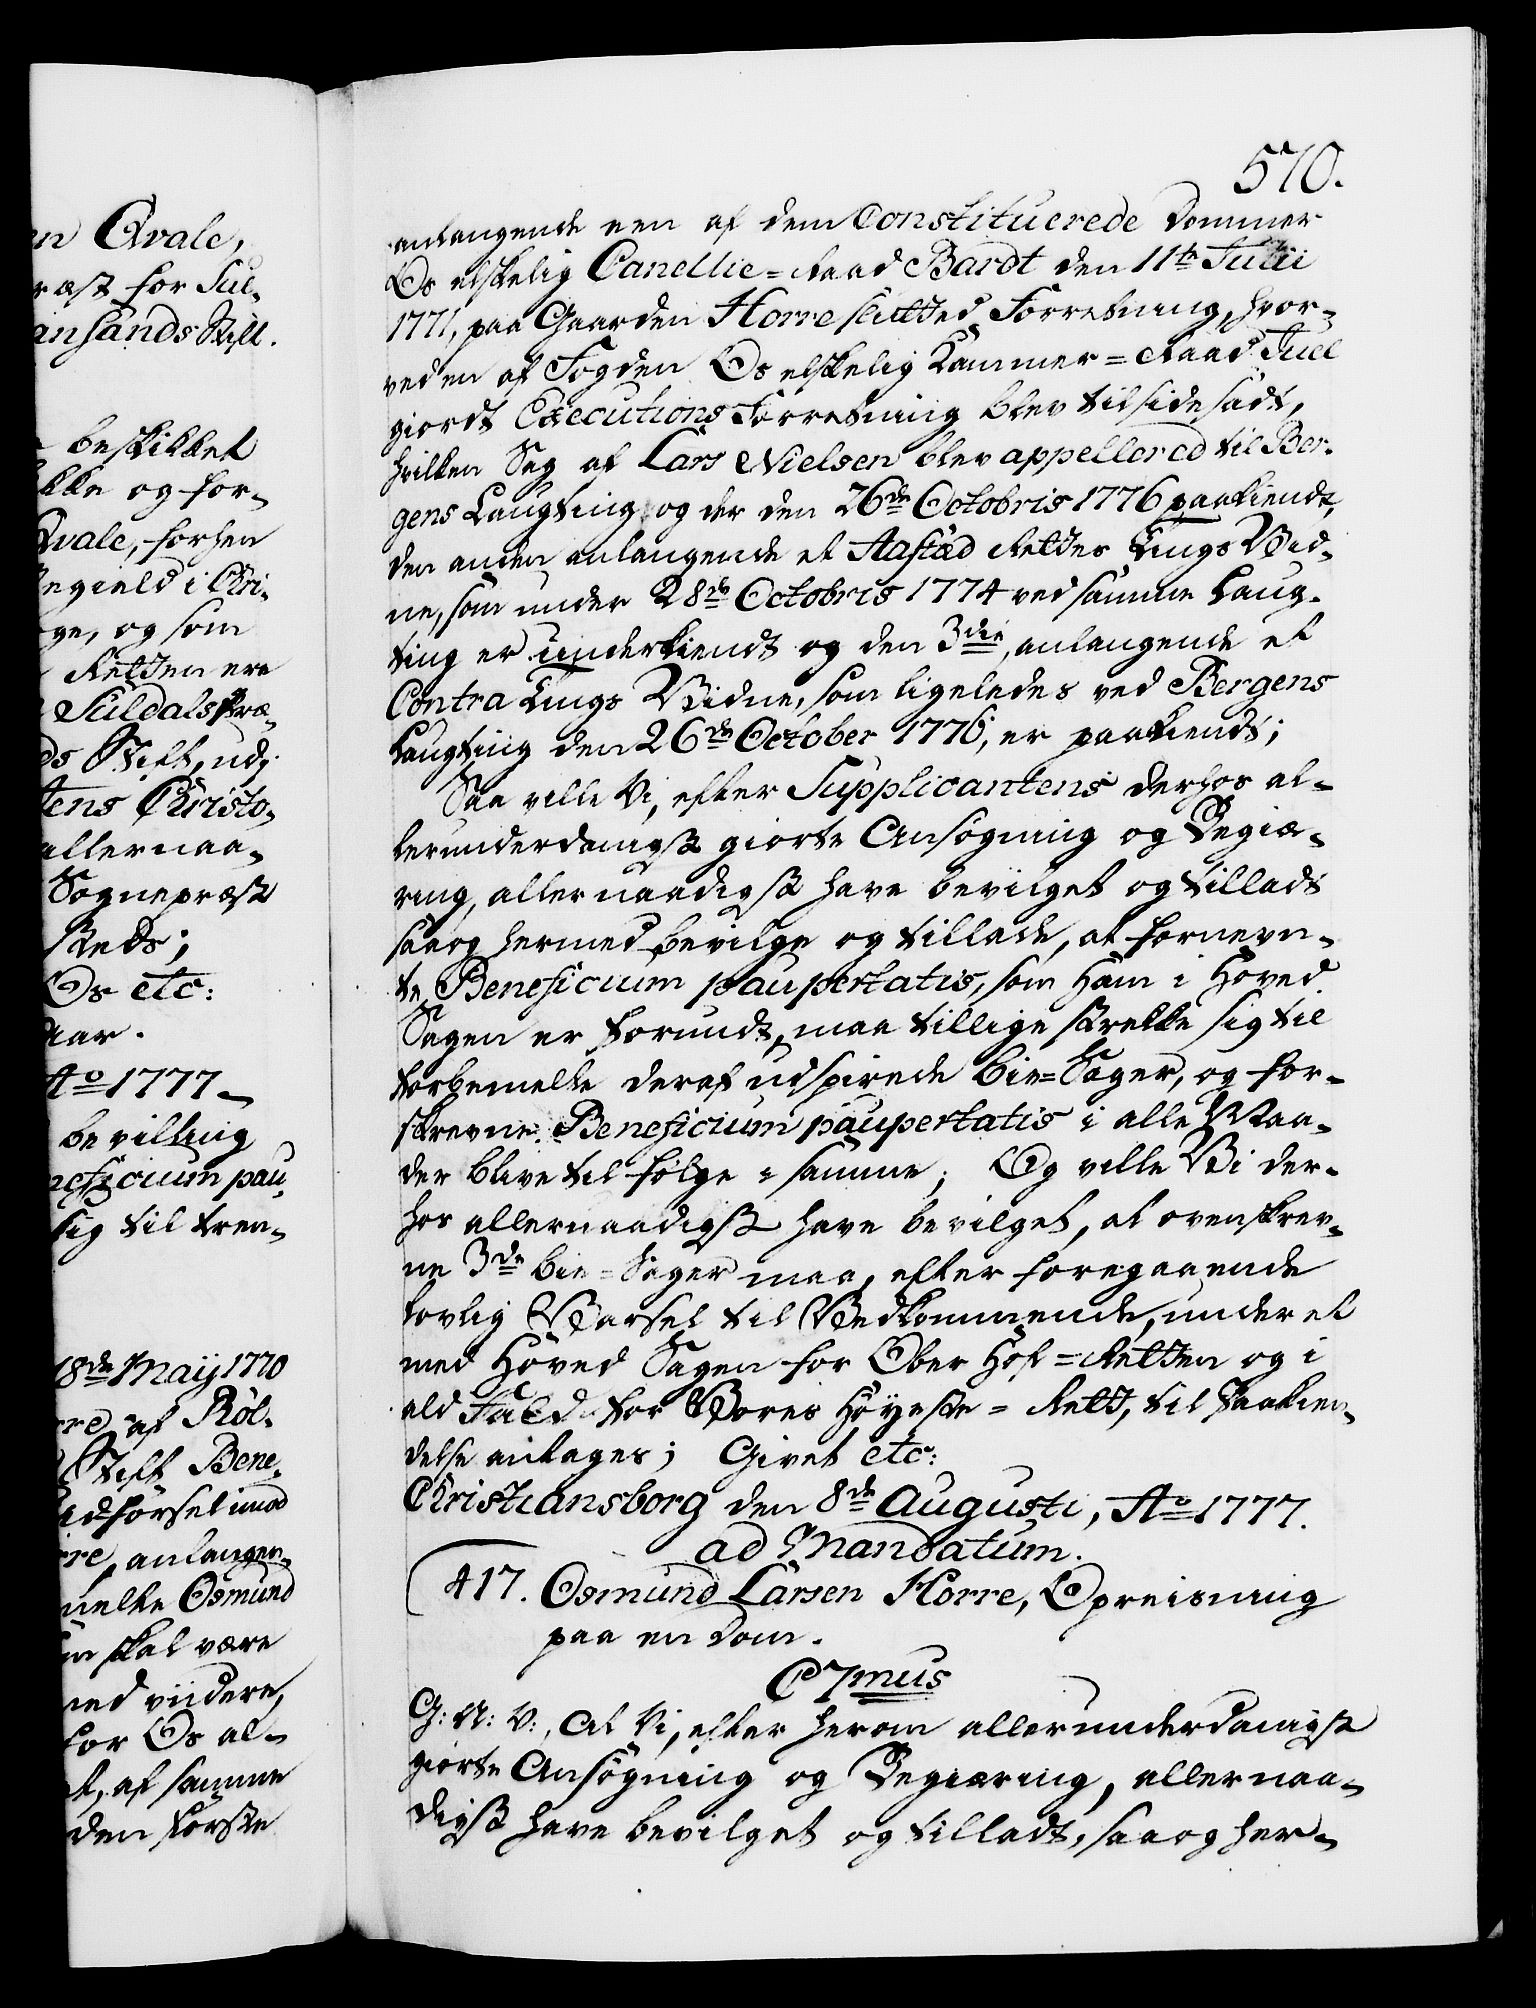 570.
en Qvale,
ræst for Sul-
ansands Stift.
beskikket
kke og for-
Qvale, forhen
egield i Chri-
ge, og som
Retten ere
Suldals Præ-
ds Stift, udj
tens Christo-
allernaa-
Sognepræst
Reds;
Os etc:
aar.
Ao 1777
bevilling
neficium pau-
sig til tven-
18de Maij 1770
rre af Röl-
Stift Bene-
udförsel imod
rre, anlangen-
melte Osmund
m skal være
ned viidere,
for Os al-
t, af samme
den første
anlangende een af dem Constituerede Dommer
Os elskelig Cancellie-Raad Bardt den 11te Julii
1771, paa Gaarden Horre slutted Forretning, hvor-
ved en af Fogden Os elskelig Kammer-Raad Juel
giordt Executions Forretning blev tilsidesadt,
hvilken Sag af Lars Nielsen blev appellered til Ber-
gens Laugting og der den 26de Octobris 1776 paakiendt,
den anden anlangende et Aastæd Rettes Tings Vid-
ne, som under 28de Octobris 1774 ved samme Laug-
ting er underkiendt og den 3die, anlangende et
Contra Tings Vidne, som ligeledes ved Bergens
Laugting den 26de October 1776, er paakiendt;
Saa ville Vi, efter Supplicantens derhos al-
lerunderdanigst giorte Ansøgning og Begiæ-
ring, allernaadigst have bevilget og tilladt
saa og hermed bevilge og tillade, at fornevn-
te Beneficium paupertatis, som Ham i Hoved
Sagen er forundt, maa tillige strekke sig til
forbemelte deraf udspirede bie-Sager, og for-
skrevne Beneficium paupertatis i alle Maa-
der blive til følge i samme; Og ville Vi der-
hos allernaadigst have bevilget, at ovenskrev-
ne 3de bie-Sager maa, efter foregaaende
lovlig Varsel til Vedkommende, under et
med Hoved Sagen for Ober Hof-Retten og i
ald Fald for Vores Høyeste-Rett, til Paakien-
delse antages; Givet etc:
Christiansborg den 8de Augusti, Ao 1777.
ad Mandatum.
417. Osmund Larsen Horre, Opreisning
paa en Dom.
C7mus
G: A: V:, At Vi, efter herom allerunderdanigst
giorte Ansøgning og Begiæring, allernaa-
digst have bevilget og tilladt, saa og her-